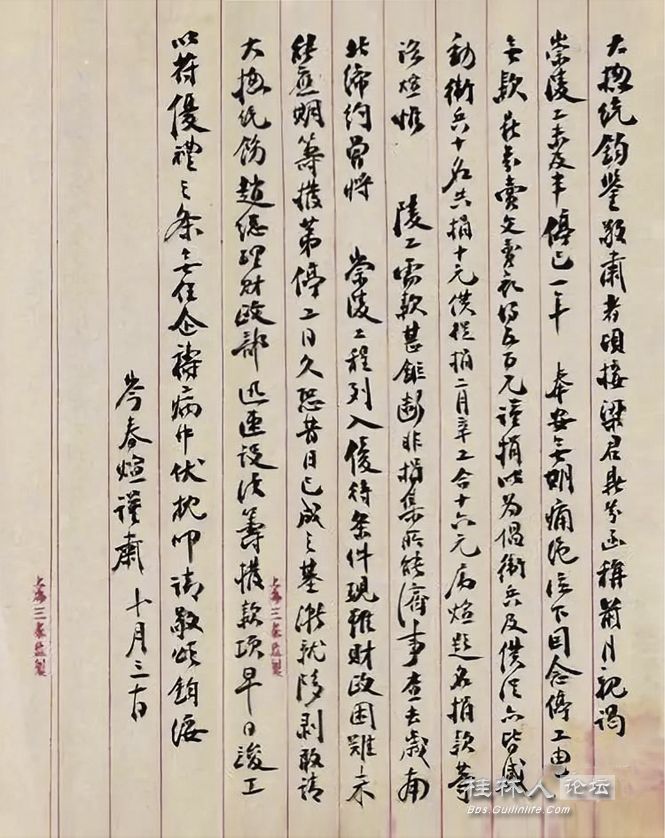 大總統鈞鑒敬肅者頃接梁君鼎芬函稱前月親謁
崇陵工未及半停已一年 奉安無期痛絕泣下因念停工由
無款鼎芬賣文賣得五百元謹捐以為倡衛兵及供役亦皆感
動衛兵十名共捐十元供役捐二月辛工合十六元屬煊題名捐款等
語煊惟 陵工需款甚鉅斷非捐集所能濟事查去歲南
北締約曾將 崇陵工程列入優待條件現雖財政困難未
能應期籌撥第停工日久恐昔日已成之基漸就剥敢請
大總統飭趙總理財政部迅速設法籌撥款項早日竣工
以符優禮之條無任企禱病中伏枕叩請敬頌鈞綏
岑春煊謹肅 十月三日
桂林人论坛
Bbs.Guilinlife.Com